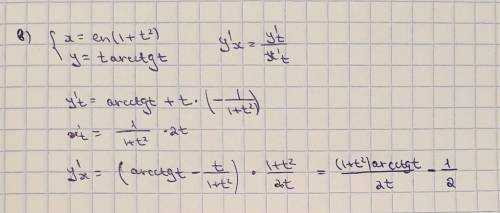 в) { x = ln(1+t²)
y = t arcctgt
y'x = y't / x't
y't = arcctgt + t · (− 1/(1+t²))
x't = 1/(1+t²) · 2t
y'x = (arcctgt − t/(1+t²)) · (1+t²)/2t = (1+t²)arcctgt / 2t − 1/2